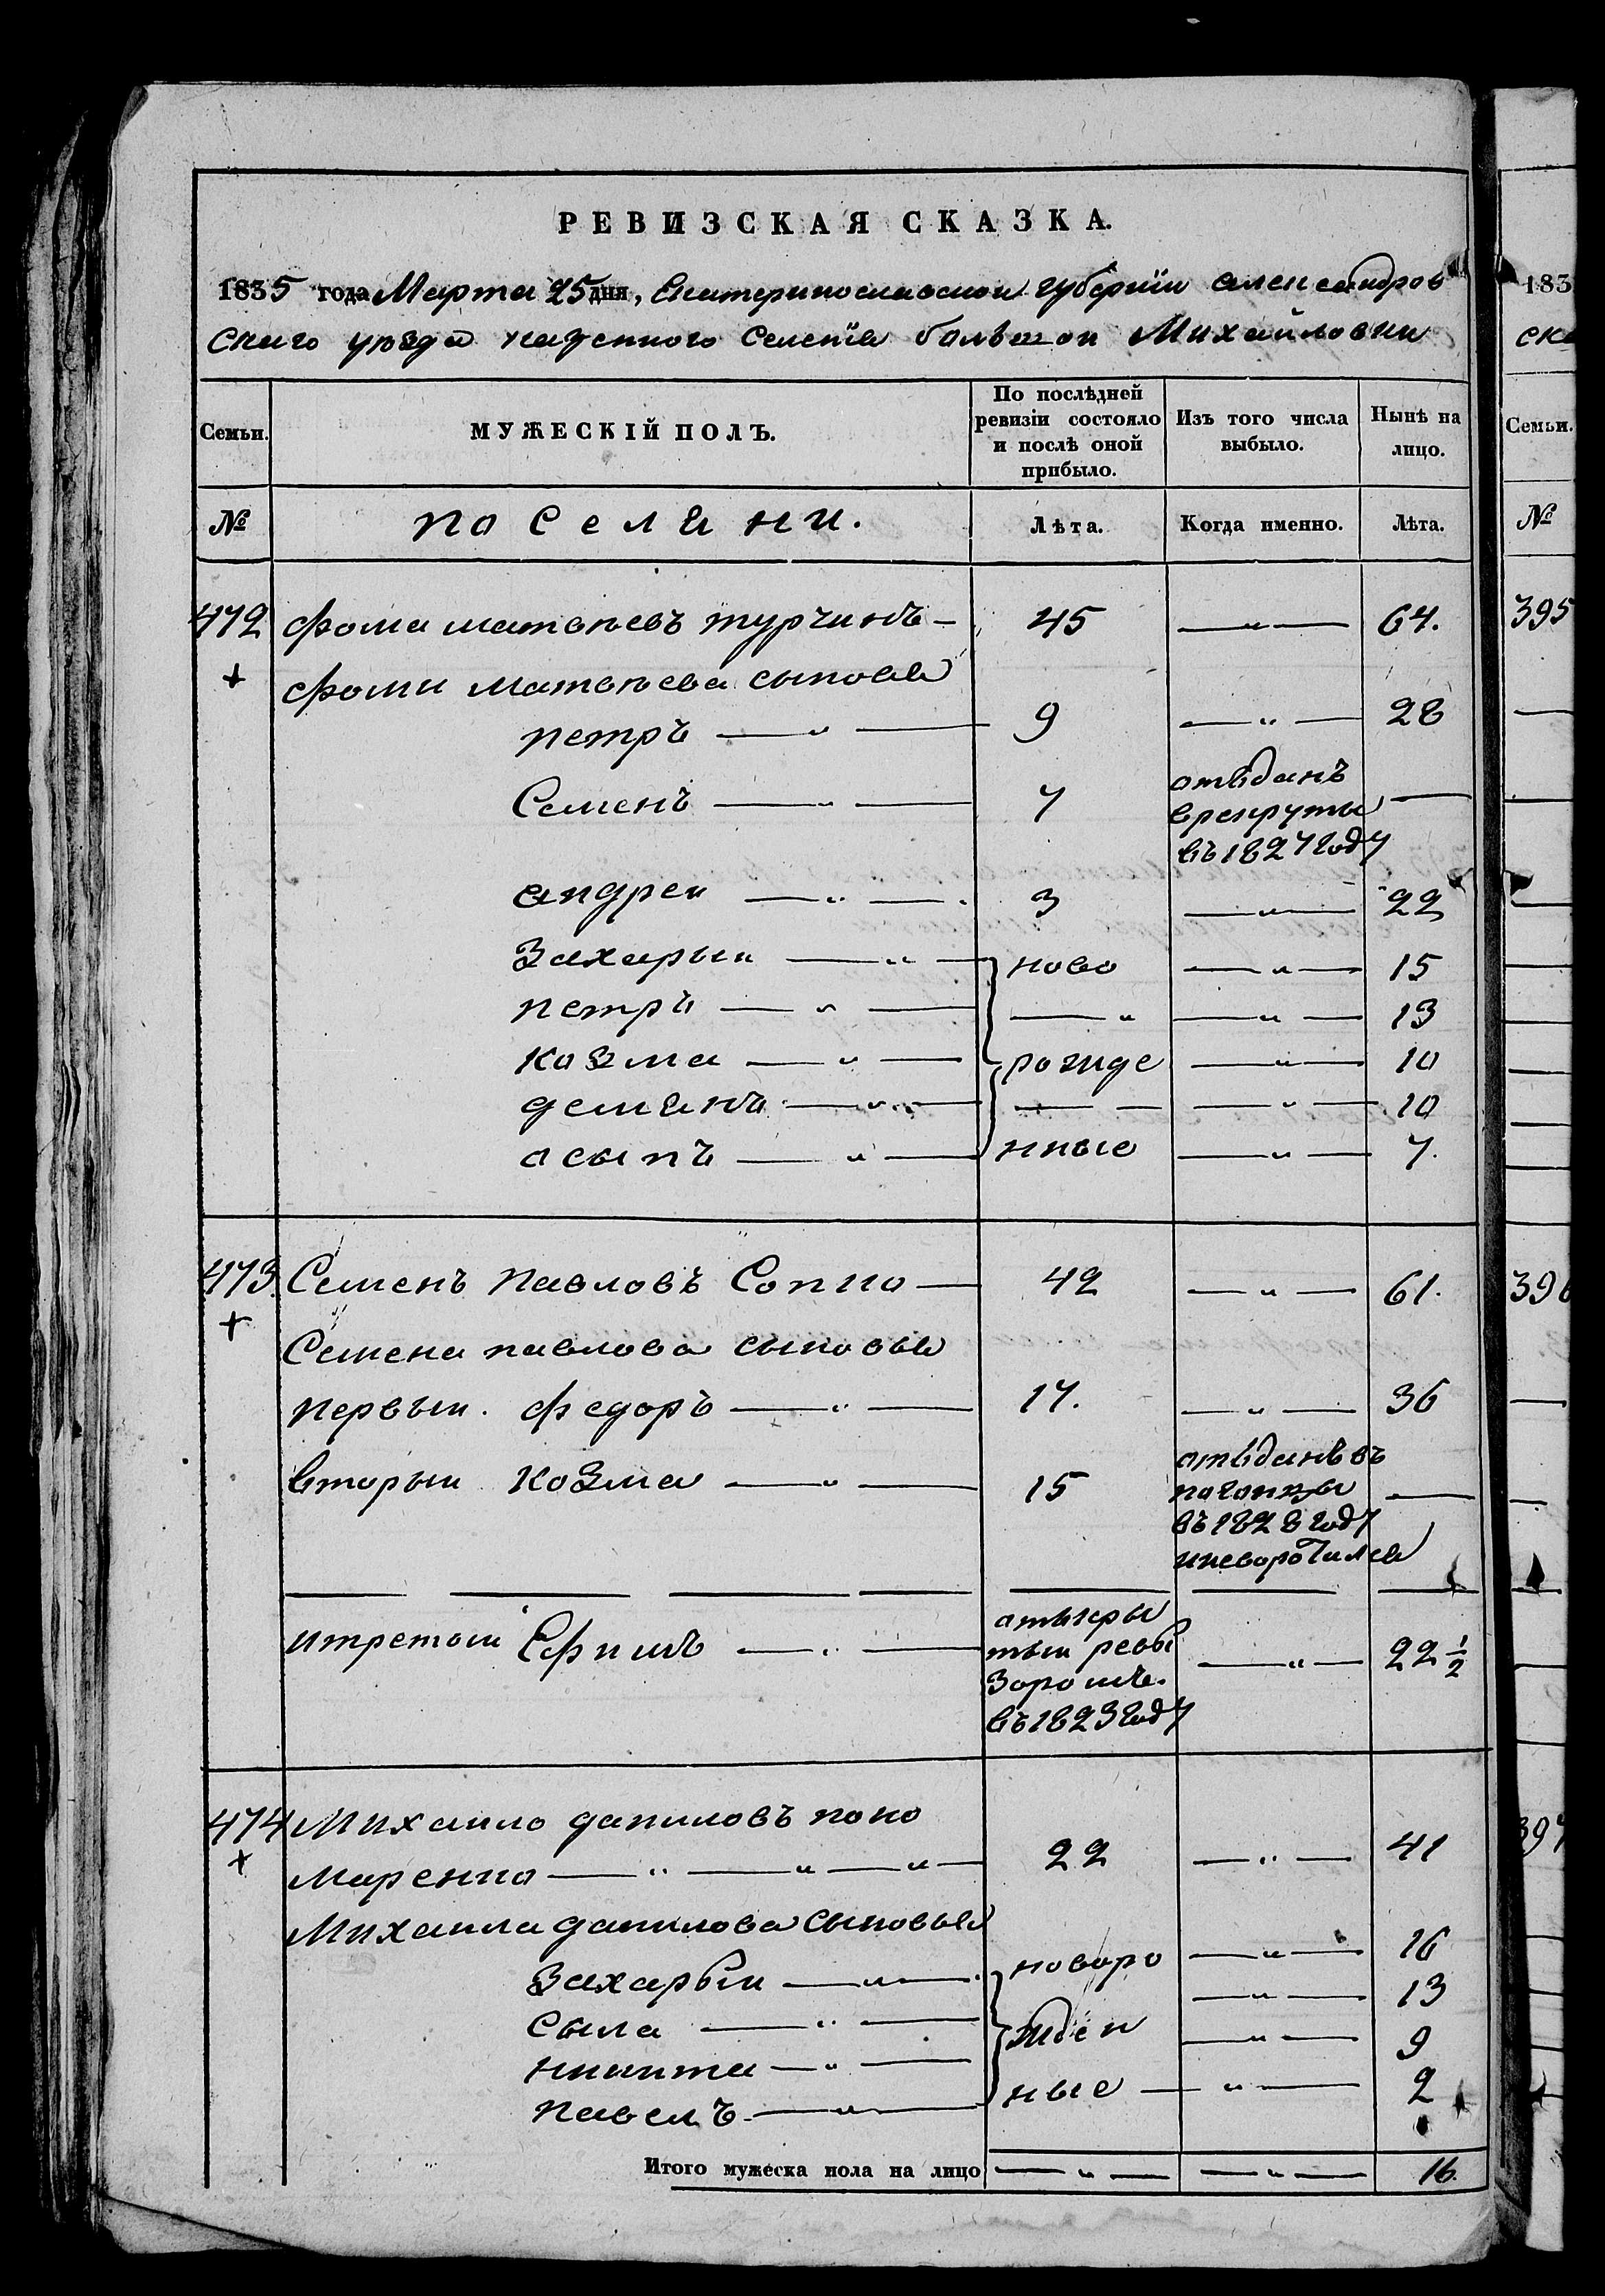 РЕВИЗСКАЯ СКАЗКА.
1835 года Марта 25 дня, Екатеринославской губерніи александров
скаго уезда казенного Селенія большой Михайловки
Семьи. МУЖЕСКІЙ ПОЛЪ. По послѣдней ревизіи состояло и послѣ оной прибыло. Изъ того числа выбыло. Нынѣ на лицо.
№ поселяни. Лѣта. Когда именно. Лѣта.
472 фома матвеевъ турчинъ — 45 — " — 64.
+ фоми матвеева сыновя
петръ — " — 9 — " — 28
Семенъ — " — 7 отъданъ врекруты въ 1827 году —
андреи — " — 3 — " — 22
Захарыи — " — ново — " — 15
петръ — " — — " — " — 13
козма — " — рожде — " — 10
демянъ — " — — — — " — 10
осыпъ — " — нные — " — 7.
473 Семенъ павловъ Сопко — 42 — " — 61.
+ Семена павлова сыновья
первыи. федоръ — " — 17. — " — 36
вторыи козма — " — 15 отъданъ въ погонцы въ 1828 году иневоротился —
итретыи Ефимъ — " — отъкры тыи реви зоромъ. въ 1823 году — " — 22 1/2
474 Михаило даниловъ поно
+ маренко — " — " — " — 22 — " — 41
Михаила данилова сыновья
Захарыи — " — новоро — " — 16
Сыла — " — — " — 13
никита — " — жден — " — 9
павелъ — " — ные — " — 2
Итого мужеска пола на лицо — " — — " — 16.
183
ска
Семьи.
№
395
396
397